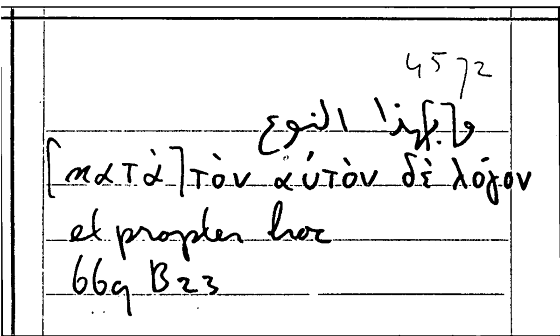 4572
النوع
[κατὰ] τὸν αὐτὸν δὲ λόγον
et propter hoc
669 B23